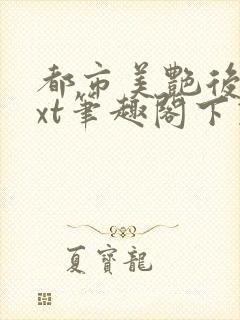 都市美艷後
xt筆趣閣下
夏寶龍